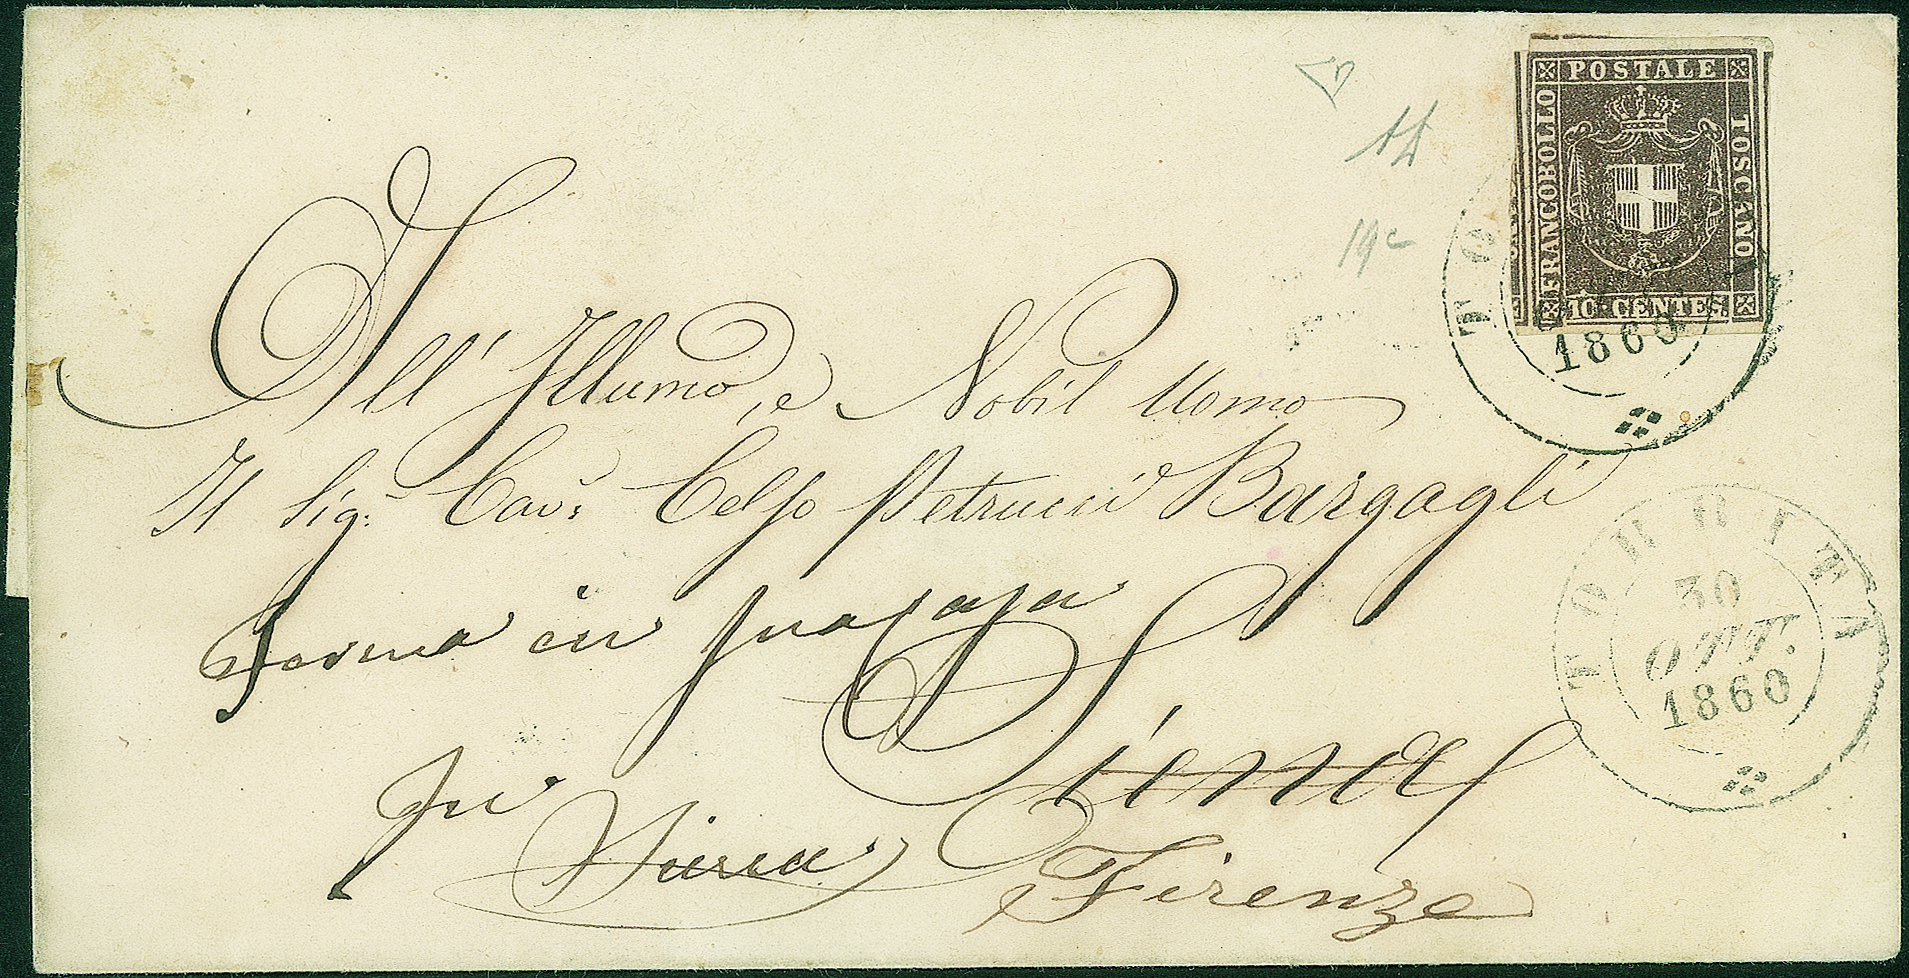 POSTALE
FRANCOBOLLO
TOSCANO
10 CENTES.
19c
TO
1860
All' Illumo, e Nobil Uomo
Il Sig: Cav: Celso Petrucci Bargagli
ferma in
TORRITA
30
OTT.
1860
Siena
per Siena
Firenze